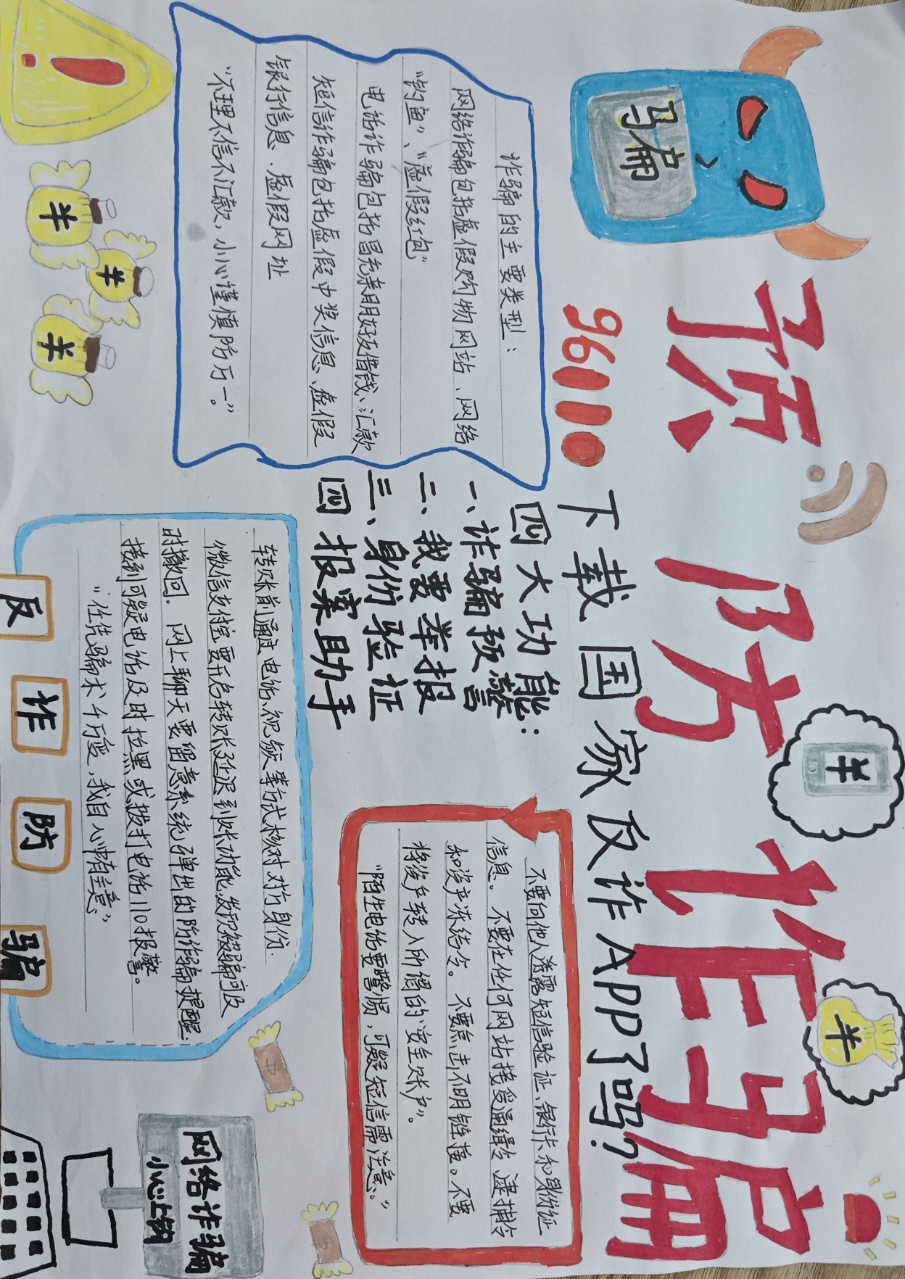 预防诈骗
骗
96110
下载国家反诈APP了吗?
诈骗的主要类型:
网络诈骗包括虚假购物网站、网络
“钓鱼”、“虚假红包”
电话诈骗包括冒充亲朋好友借钱、汇款
短信诈骗包括虚假中奖信息、虚假
银行信息、虚假网址
“不理不信不汇款,小心谨慎防万一。”
四大功能:
一、诈骗预警
二、我要举报
三、身份验证
四 报案助手
不要向他人透露短信验证、银行卡和身份证
信息。不要在任何网站接受通缉令、逮捕令
和资产冻结令。不要点击不明链接。不要
将资产转入所谓的“安全账户”。
“陌生电话要警惕,可疑短信需注意。”
转账前通过电话、视频等方式核对对方身份.
微信支付宝要开启转账延迟到账功能,发现被骗可及
时撤回.网上聊天要留意系统弹出的防诈骗提醒.
接到可疑电话及时拉黑或拨打电话110报警。
“任凭骗术千万变,我自心中有主意”
反诈防骗
网络诈骗
小心上钩